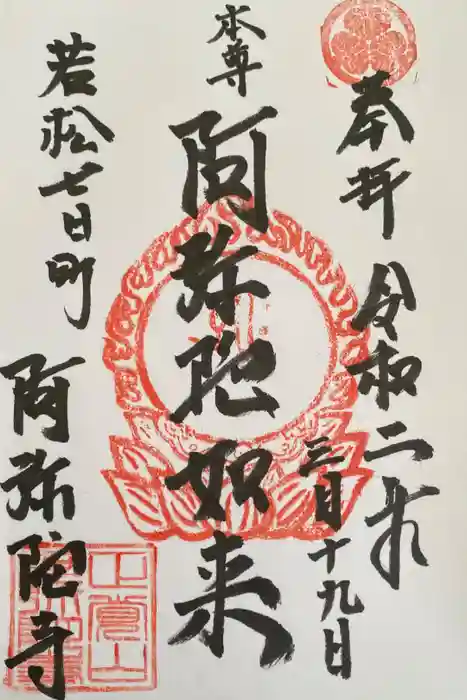 奉拝
令和二年
三月十九日
本尊
阿弥陀如来
若松七日町
阿弥陀寺